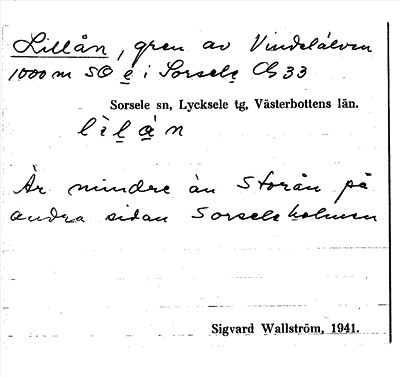 Lillån, gren av Vindelälven
1000 m SO e i Sorsele Cb 33
Sorsele sn, Lycksele tg, Västerbottens län.
lìlạ̊̀n
Är mindre än Storån på
andra sidan Sorseleholmen
Sigvard Wallström, 1941.